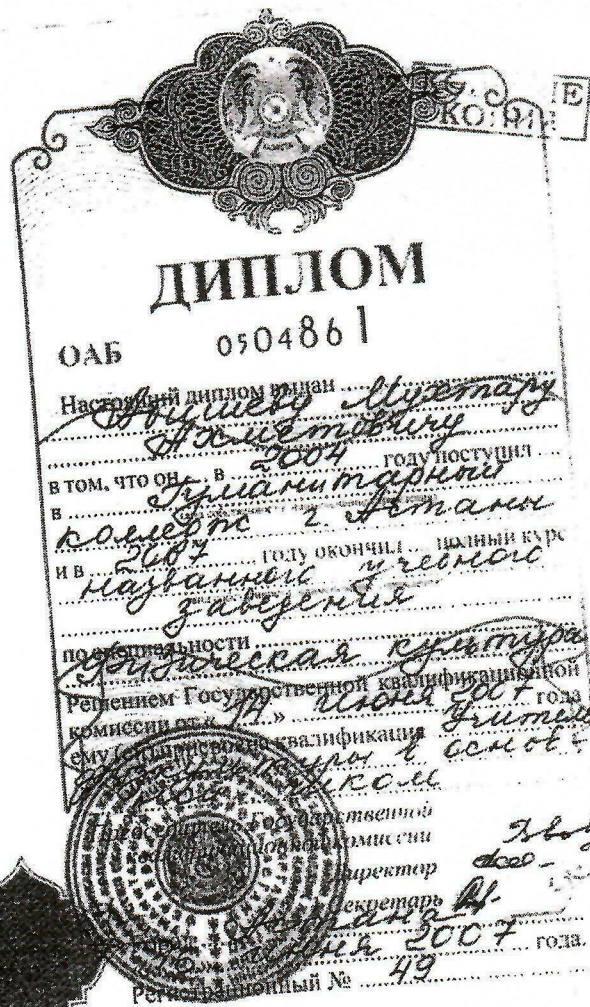 КОПИЯ
ДИПЛОМ
ОАБ 0504861
Настоящий диплом выдан
Мухтару
Ахметовичу
в том, что он в 2004 году поступил
в Гуманитарный
колледж г. Астаны
и в 2007 году окончил полный курс
названного учебного
заведения
по специальности
Физическая культура
Решением Государственной квалификационной
комиссии от « 19 » июня 2007 года
ему присвоена квалификация Учитель
физкультуры и основ
Государственной
квалификационной комиссии
Директор
Секретарь
Астана
июня 2007 года.
Регистрационный № 49